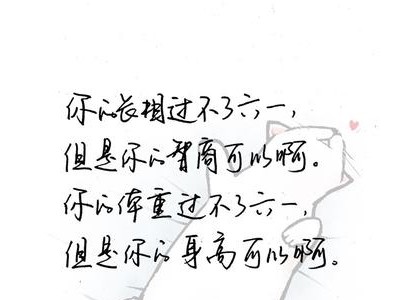 你的长相过不了六一，
但是你的智商可以啊。
你的体重过不了六一，
但是你的身高可以啊。